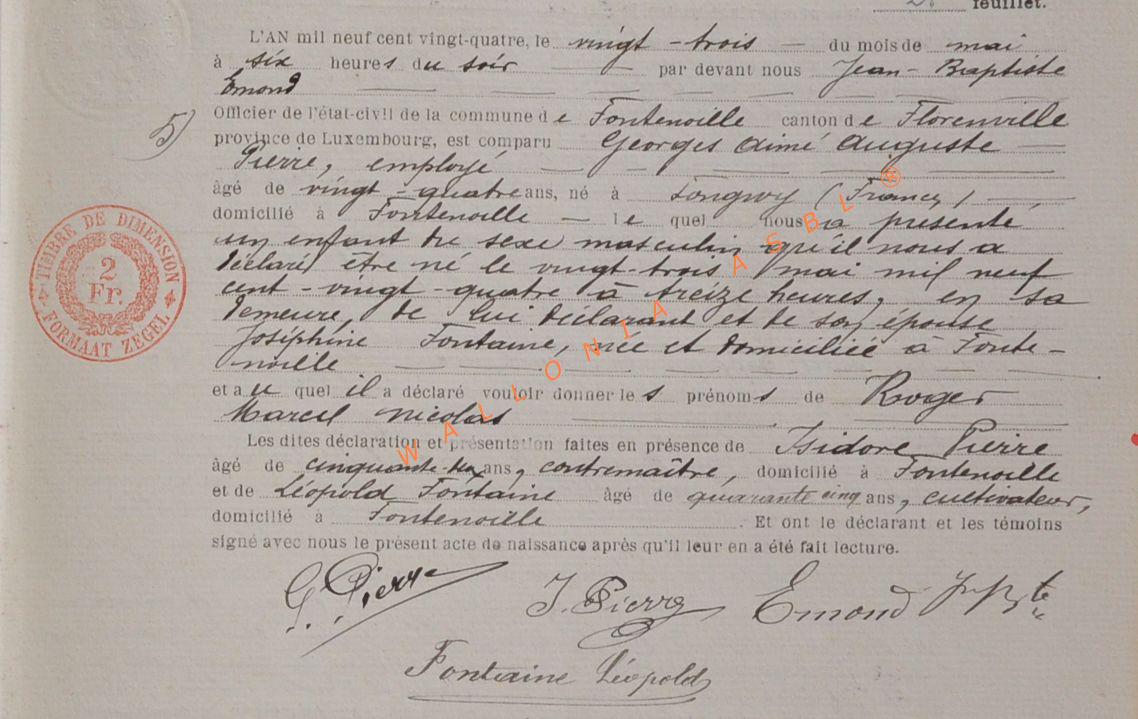 2. feuillet.
L'AN mil neuf cent vingt-quatre, le vingt-trois — du mois de mai
à six heures du soir — par devant nous Jean-Baptiste
Emond
Officier de l'état-civil de la commune de Fontenoille canton de Florenville
5)
province de Luxembourg, est comparu Georges Aimé Auguste —
Pierre, employé
âgé de vingt-quatre ans, né à Longwy (France) —,
domicilié à Fontenoille — lequel nous a présenté
un enfant du sexe masculin qu'il nous a
déclaré être né le vingt-trois mai mil neuf
cent-vingt-quatre à treize heures, en sa
demeure, de lui déclarant et de son épouse
Joséphine Fontaine, née et domiciliée à Fonte-
noille
et auquel il a déclaré vouloir donner les prénoms de Roger
Marcel Nicolas
Les dites déclaration et présentation faites en présence de Isidore Pierre
âgé de cinquante- ans, contremaître, domicilié à Fontenoille
et de Léopold Fontaine âgé de quarante cinq ans, cultivateur,
domicilié à Fontenoille. Et ont le déclarant et les témoins
signé avec nous le présent acte de naissance après qu'il leur en a été fait lecture.
G. Pierre
J. Pierre
Emond J. Bte
Fontaine Léopold
TIMBRE DE DIMENSION
2
Fr.
FORMAAT ZEGEL
WALLONIA ASBL ®